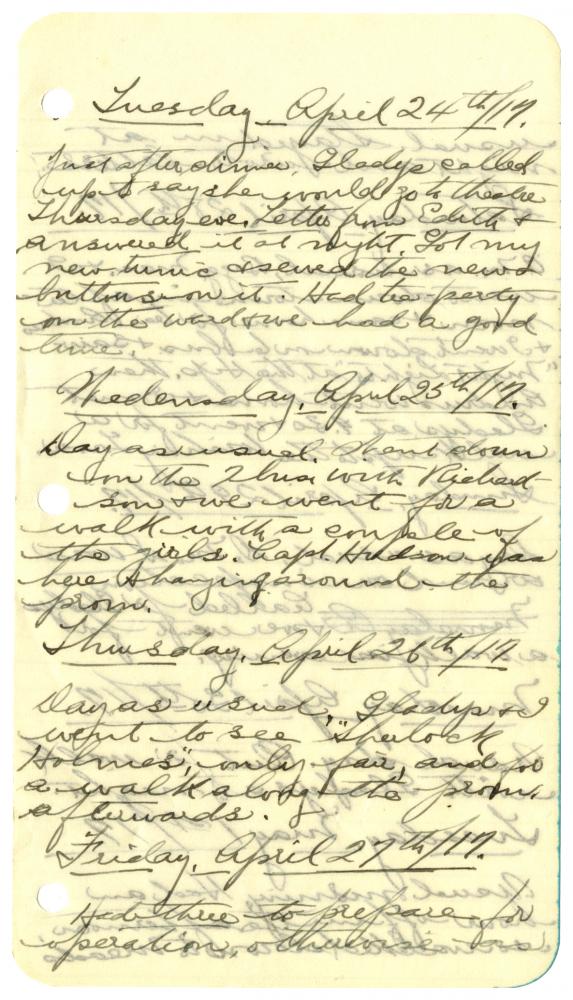 Tuesday, April 24th/17.
Just after dinner, Gladys called
up to say she would go to theatre
Thursday eve. Letter from Edith &
answered it at night. Got my
new tunic & sewed the news
buttons on it. Had tea party
on the ward & we had a good
time.
Wedensday, April 25th/17.
Day as usual. Went down
on the bus with Richard-
son & we went for a
walk with a couple of
the girls. Capt. Hudson was
here & hanging around the
prom.
Thursday, April 26th/17
Day as usual, Gladys & I
went to see "Sherlock
Holmes", only fair, and for
a walk along the prom.
afterwards.
Friday, April 27th/17.
Had three to prepare for
operation, otherwise as